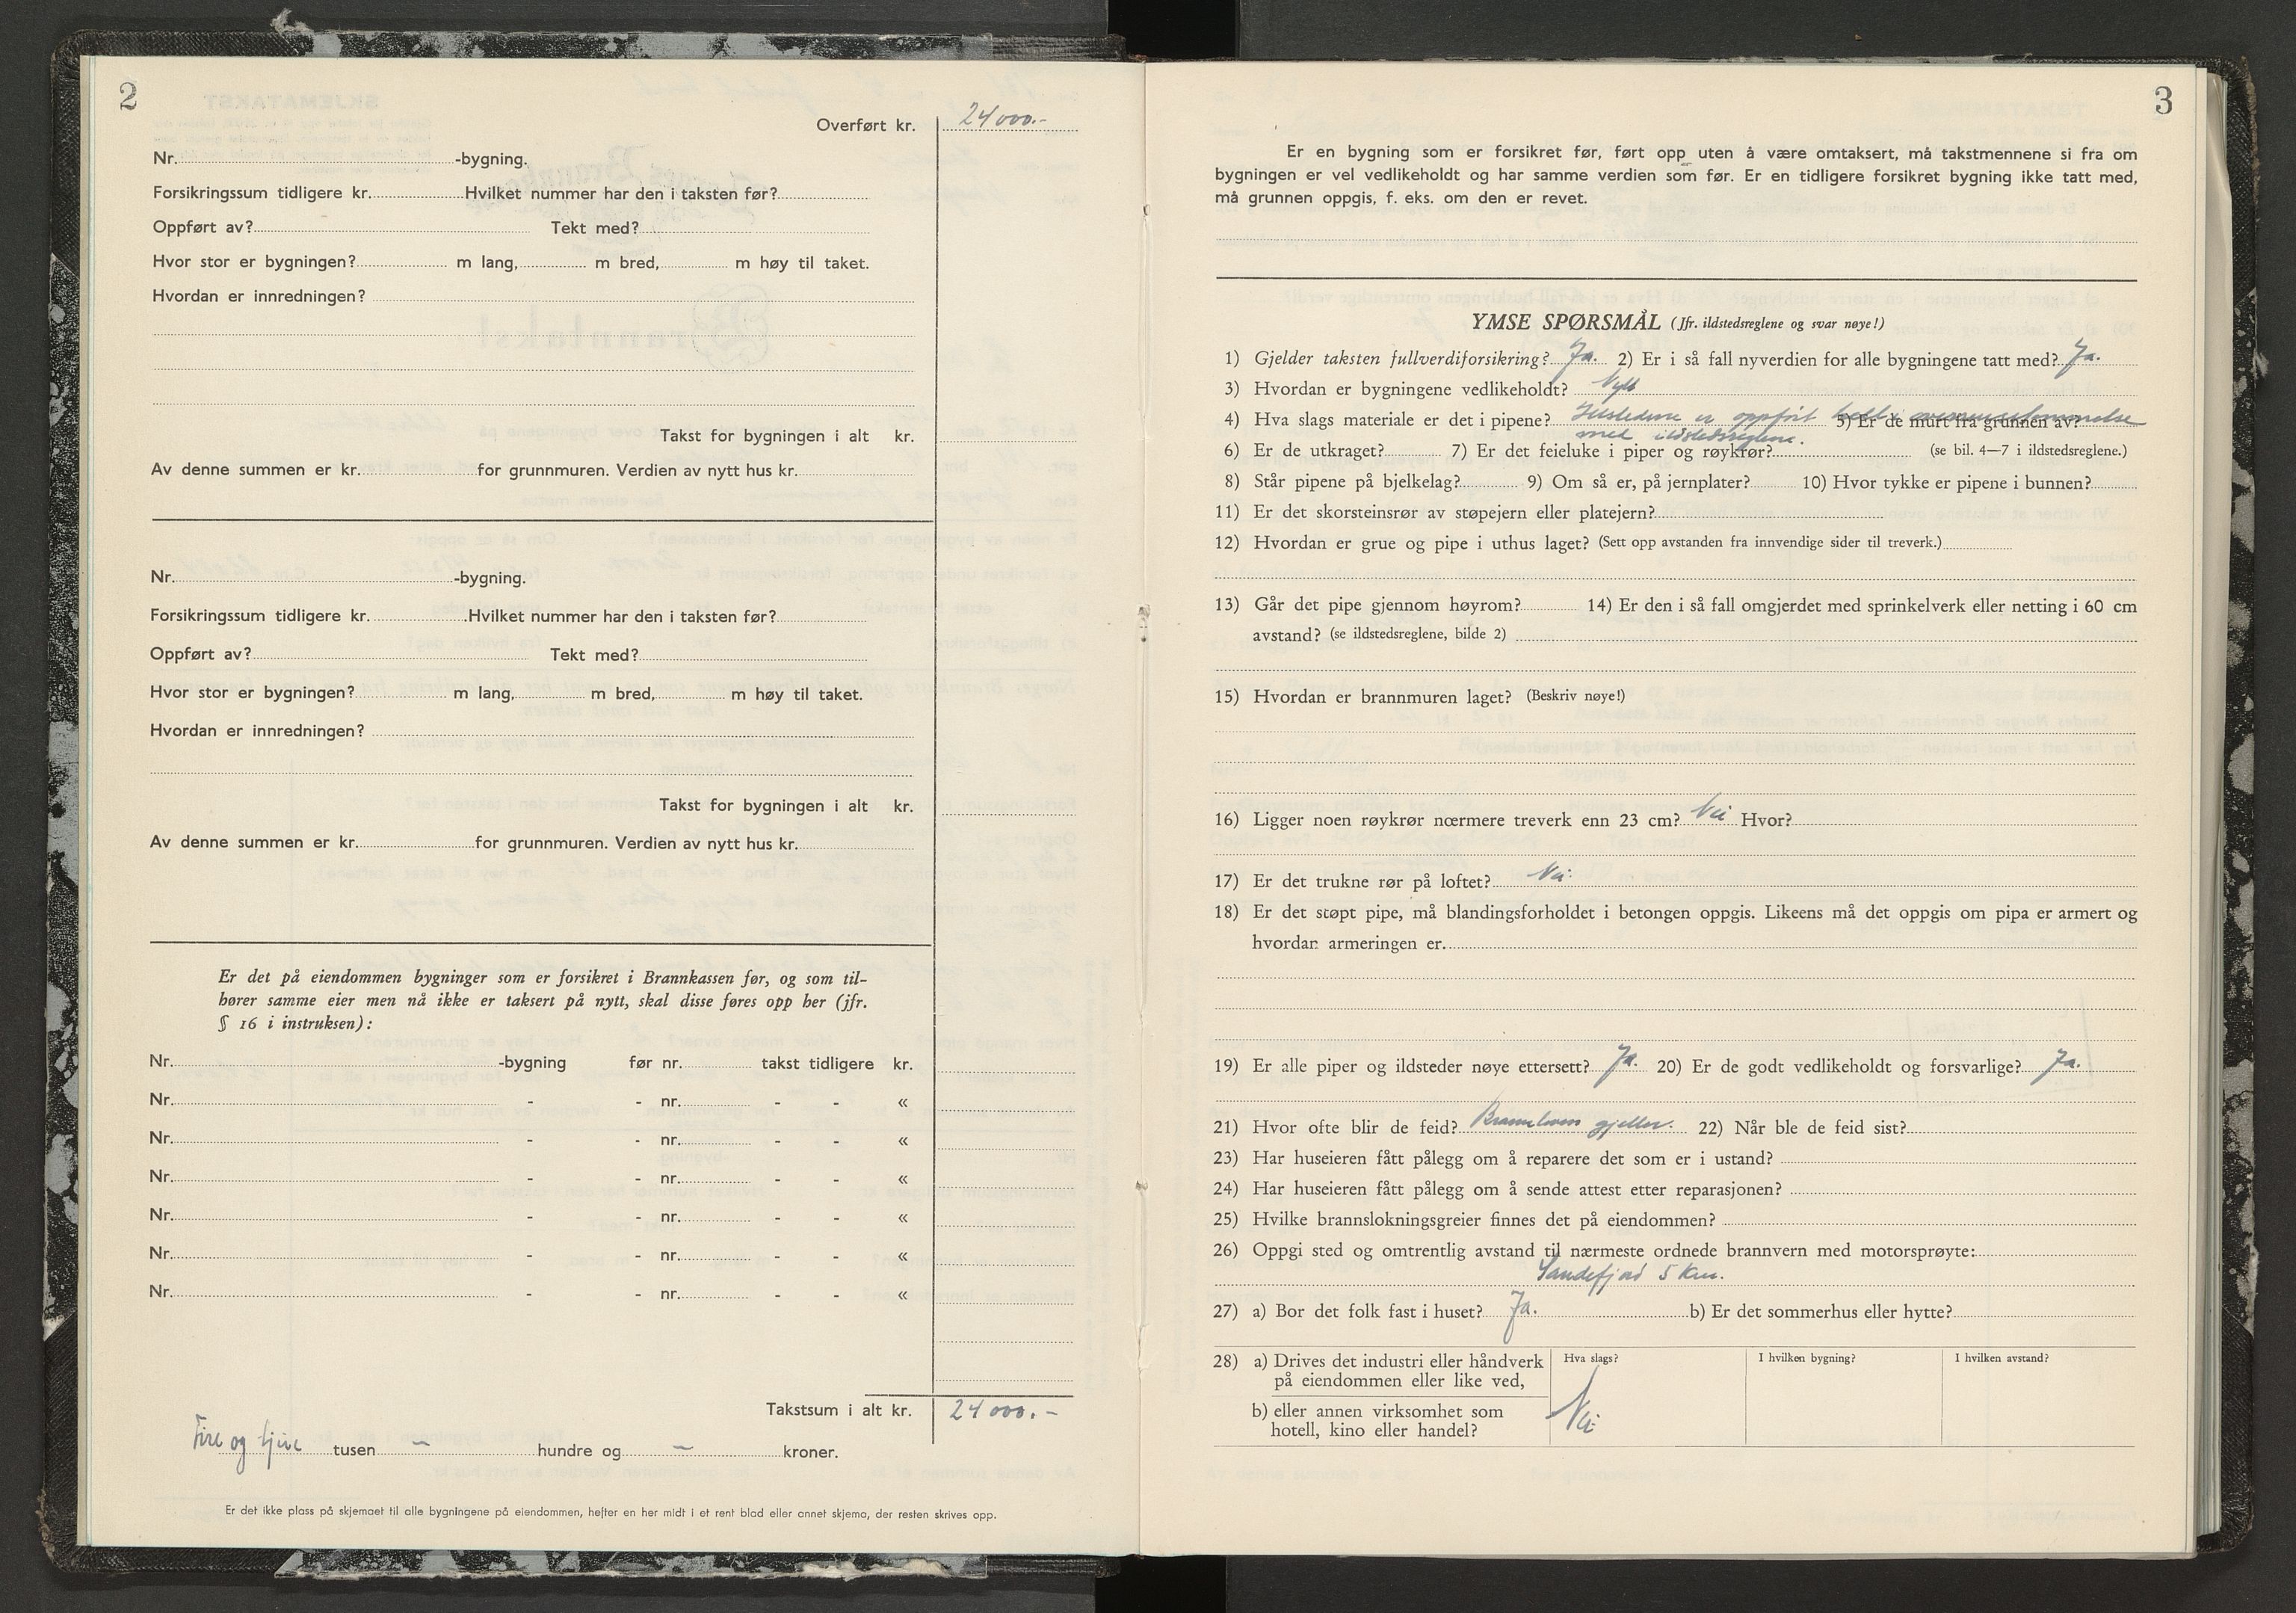 2
Overført kr. 24 000.-
Nr. -bygning.
Forsikringssum tidligere kr. Hvilket nummer har den i taksten før?
Oppført av? Tekt med?
Hvor stor er bygningen? m lang, m bred, m høy til taket.
Hvordan er innredningen?
Takst for bygningen i alt kr.
Av denne summen er kr. for grunnmuren. Verdien av nytt hus kr.
Nr. -bygning.
Forsikringssum tidligere kr. Hvilket nummer har den i taksten før?
Oppført av? Tekt med?
Hvor stor er bygningen? m lang, m bred, m høy til taket.
Hvordan er innredningen?
Takst for bygningen i alt kr.
Av denne summen er kr. for grunnmuren. Verdien av nytt hus kr.
Er det på eiendommen bygninger som er forsikret i Brannkassen før, og som til-
hører samme eier men nå ikke er taksert på nytt, skal disse føres opp her (jfr.
§ 16 i instruksen):
Nr. -bygning før nr. takst tidligere kr.
Nr. - - nr. - - «
Nr. - - nr. - - «
Nr. - - nr. - - «
Nr. - - nr. - - «
Nr. - - nr. - - «
Nr. - - nr. - - «
Takstsum i alt kr. 24 000.-
Fire og tjue tusen — hundre og — kroner.
Er det ikke plass på skjemaet til alle bygningene på eiendommen, hefter en her midt i et rent blad eller annet skjema, der resten skrives opp.
3
Er en bygning som er forsikret før, ført opp uten å være omtaksert, må takstmennene si fra om
bygningen er vel vedlikeholdt og har samme verdien som før. Er en tidligere forsikret bygning ikke tatt med,
må grunnen oppgis, f. eks. om den er revet.
YMSE SPØRSMÅL (Jfr. ildstedsreglene og svar nøye!)
1) Gjelder taksten fullverdiforsikring? Ja. 2) Er i så fall nyverdien for alle bygningene tatt med? Ja.
3) Hvordan er bygningene vedlikeholdt? Nytt
4) Hva slags materiale er det i pipene? Ildstedene er oppført 5) Er de murt fra grunnen av?
med ildstedsreglene.
6) Er de utkraget? 7) Er det feieluke i piper og røykrør? (se bil. 4—7 i ildstedsreglene.)
8) Står pipene på bjelkelag? 9) Om så er, på jernplater? 10) Hvor tykke er pipene i bunnen?
11) Er det skorsteinsrør av støpejern eller platejern?
12) Hvordan er grue og pipe i uthus laget? (Sett opp avstanden fra innvendige sider til treverk.)
13) Går det pipe gjennom høyrom? 14) Er den i så fall omgjerdet med sprinkelverk eller netting i 60 cm
avstand? (se ildstedsreglene, bilde 2)
15) Hvordan er brannmuren laget? (Beskriv nøye!)
16) Ligger noen røykrør nærmere treverk enn 23 cm? Nei Hvor?
17) Er det trukne rør på loftet? Nei.
18) Er det støpt pipe, må blandingsforholdet i betongen oppgis. Likeens må det oppgis om pipa er armert og
hvordan armeringen er.
19) Er alle piper og ildsteder nøye ettersett? Ja. 20) Er de godt vedlikeholdt og forsvarlige? Ja.
21) Hvor ofte blir de feid? Brannloven gjelder. 22) Når ble de feid sist?
23) Har huseieren fått pålegg om å reparere det som er i ustand?
24) Har huseieren fått pålegg om å sende attest etter reparasjonen?
25) Hvilke brannslokningsgreier finnes det på eiendommen?
26) Oppgi sted og omtrentlig avstand til nærmeste ordnede brannvern med motorsprøyte:
Sandefjord 5 km.
27) a) Bor det folk fast i huset? Ja. b) Er det sommerhus eller hytte?
28) a) Drives det industri eller håndverk Hva slags? I hvilken bygning? I hvilken avstand?
på eiendommen eller like ved,
b) eller annen virksomhet som Nei
hotell, kino eller handel?